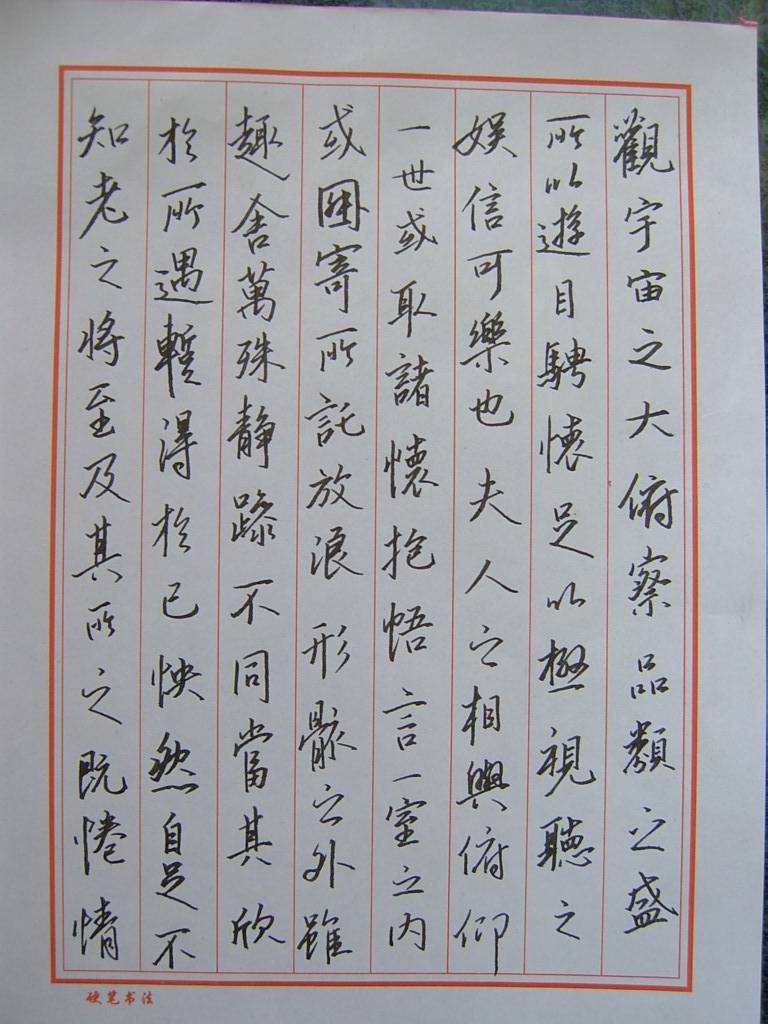 觀宇宙之大俯察品類之盛
所以遊目騁懷足以極視聽之
娱信可樂也夫人之相與俯仰
一世或取諸懷抱悟言一室之内
或因寄所託放浪形骸之外雖
趣舍萬殊静躁不同當其欣
於所遇暫得於己怏然自足不
知老之将至及其所之既惓情
硬笔书法